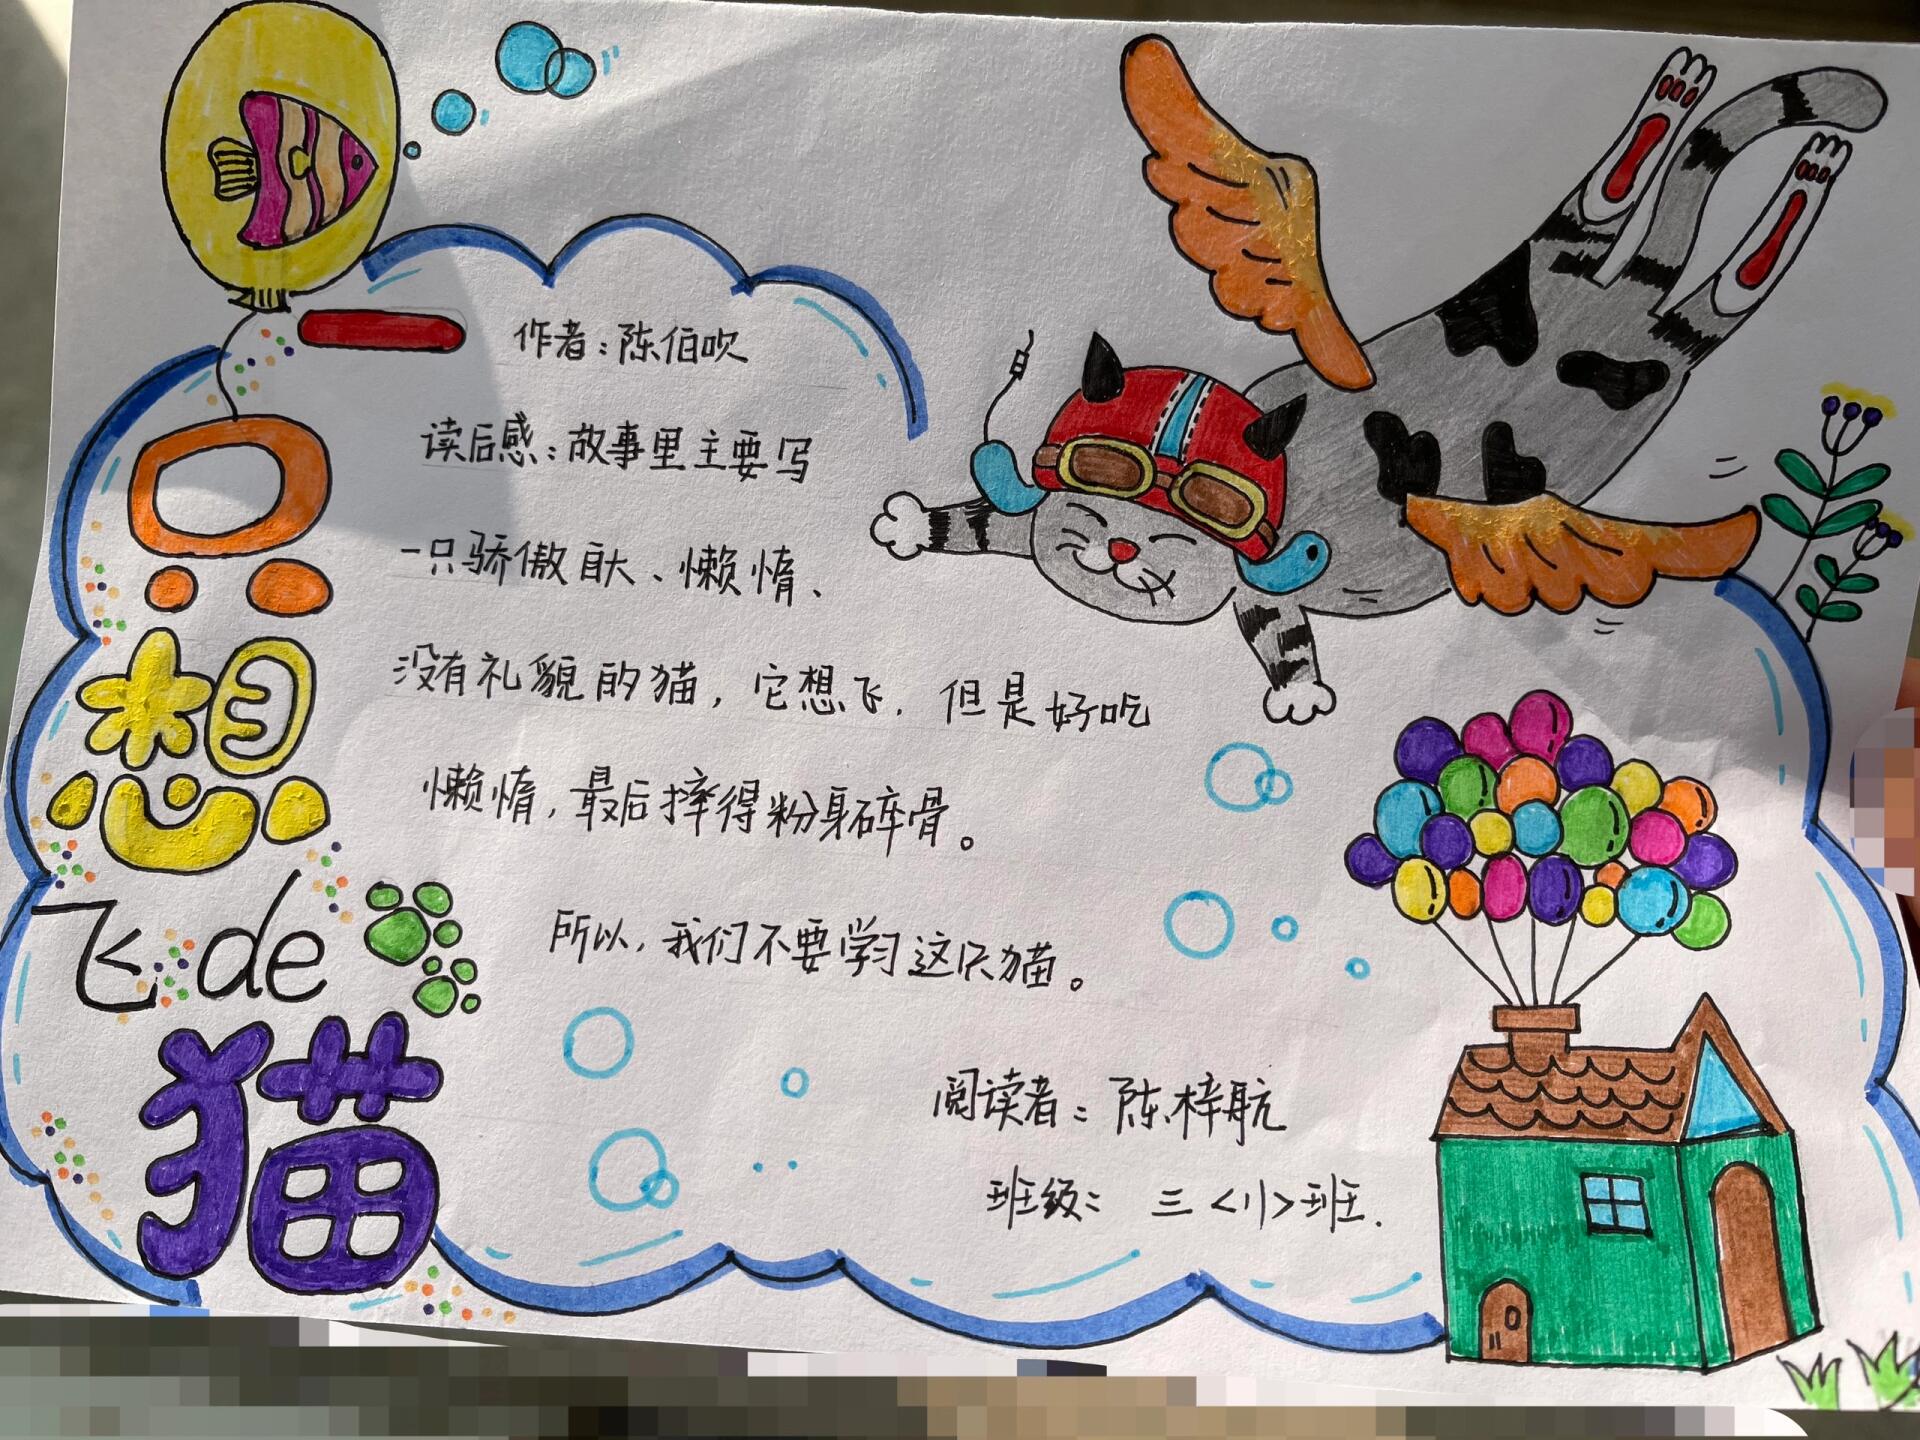 一只想飞de猫
作者：陈伯吹
读后感：故事里主要写
一只骄傲自大、懒惰、
没有礼貌的猫，它想飞，但是好吃
懒惰，最后摔得粉身碎骨。
所以，我们不要学习这只猫。
阅读者：陈梓航
班级：三<1>班.